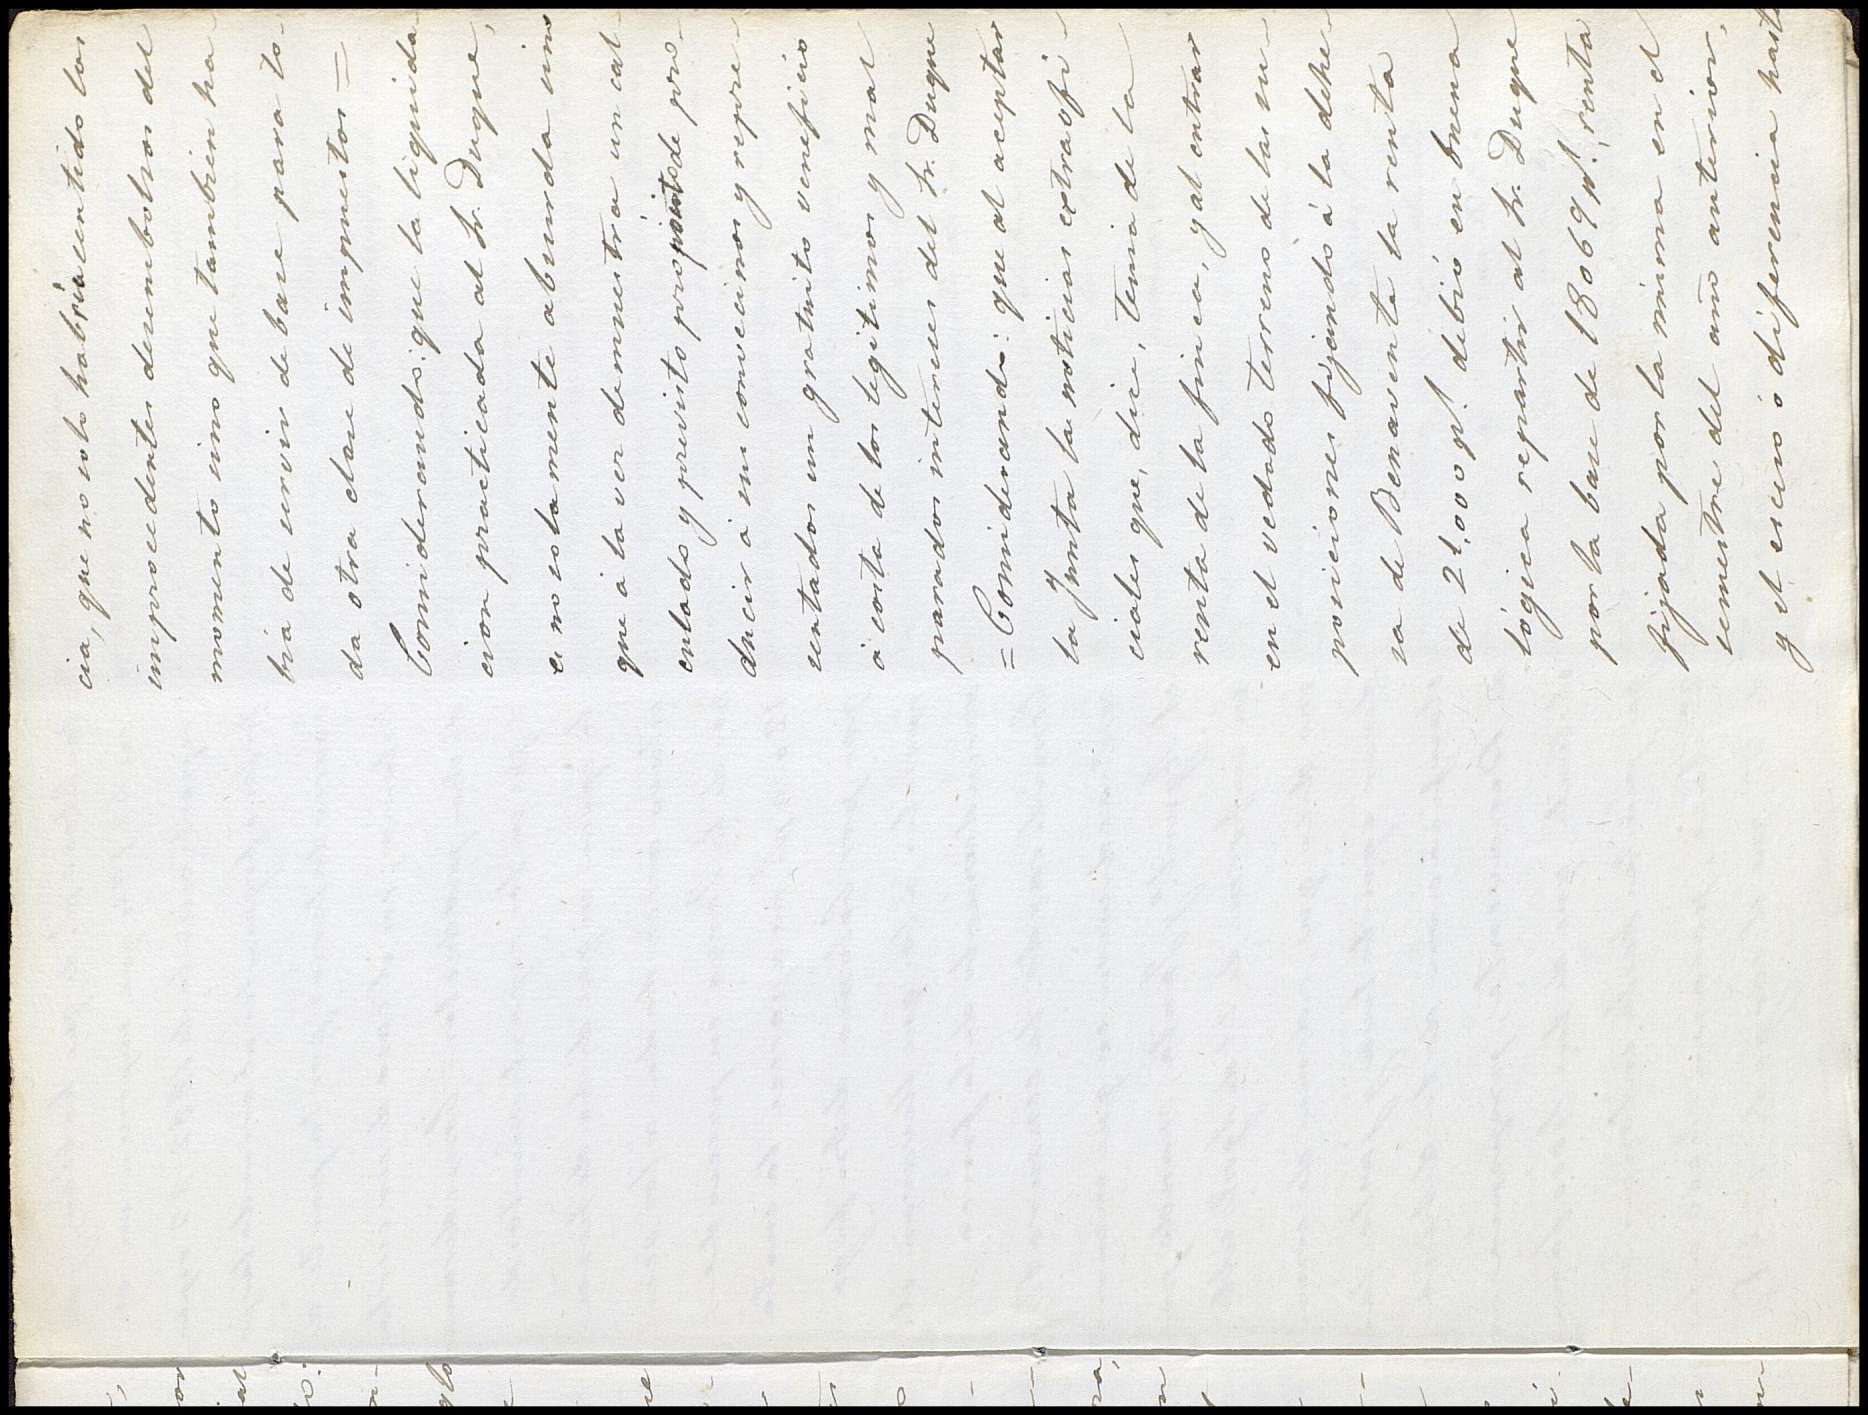 cia, que no solo habria sentido los
improcedentes desembolsos del
momento sino que tambien ha-
bia de servir de base para to-
da otra clase de impuestos =
Considerando: que la liquida-
cion practicada al Sr. Duque,
es no solamente absurda sino
que á la vez demuestra un cal-
culado y previsto propósito de pro-
ducir á sus convecinos y repre-
sentados un gratuito veneficio
á costa de los legitimos y mal
parados intereses del Sr. Duque
= Considerando: que al aceptar
la Junta las noticias extraofi-
ciales que, dice, tenia de la
renta de la finca, y al entrar
en el vedado terreno de las su-
posiciones fijando á la dehe-
sa de Benaventa la renta
de 21,000 pts. debió en buena
lógica repartir al Sr. Duque
por la base de 18069 pts., renta
fijada por la misma en el
semestre del año anterior,
y el esceso ó diferencia hasta